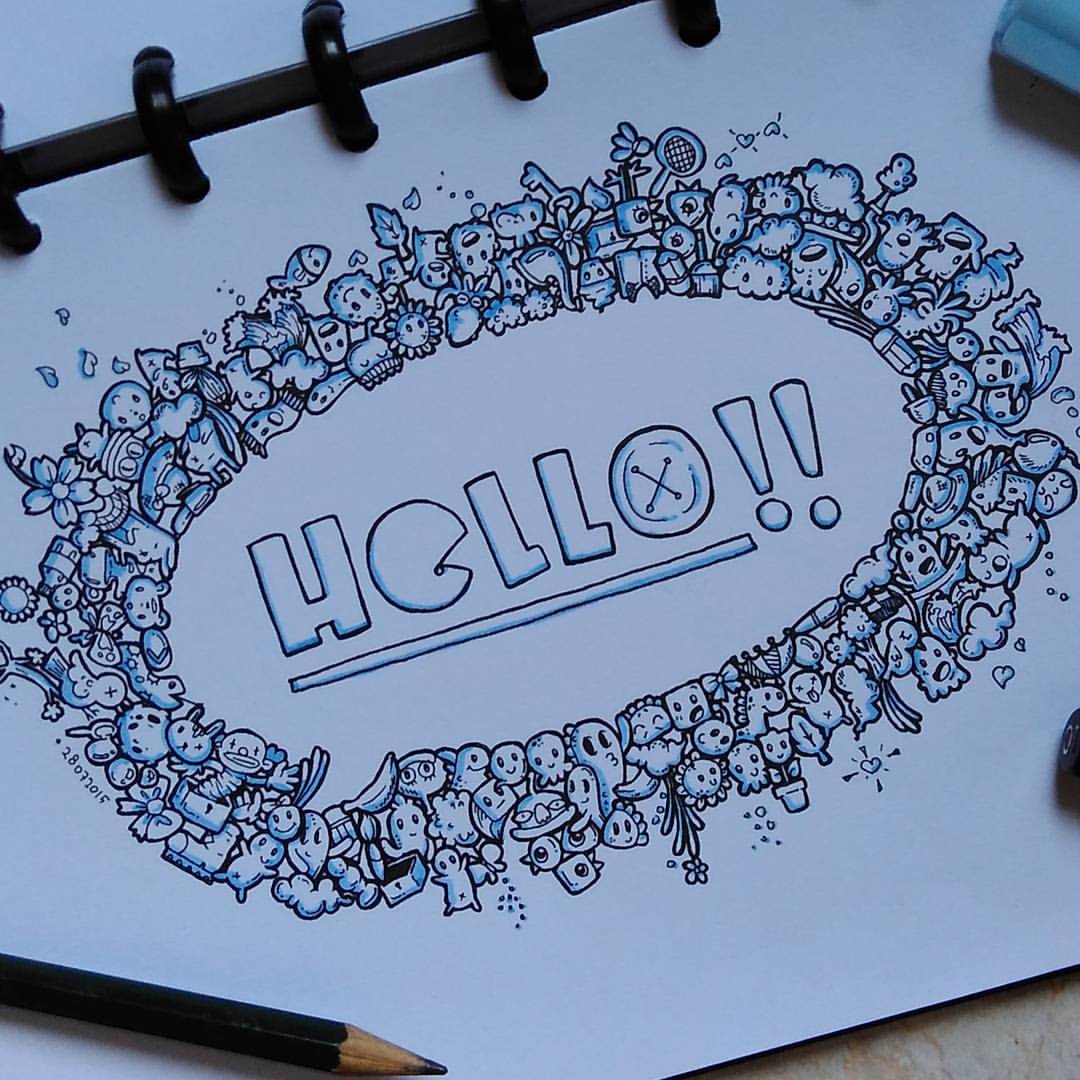 HELLO!!
28072015